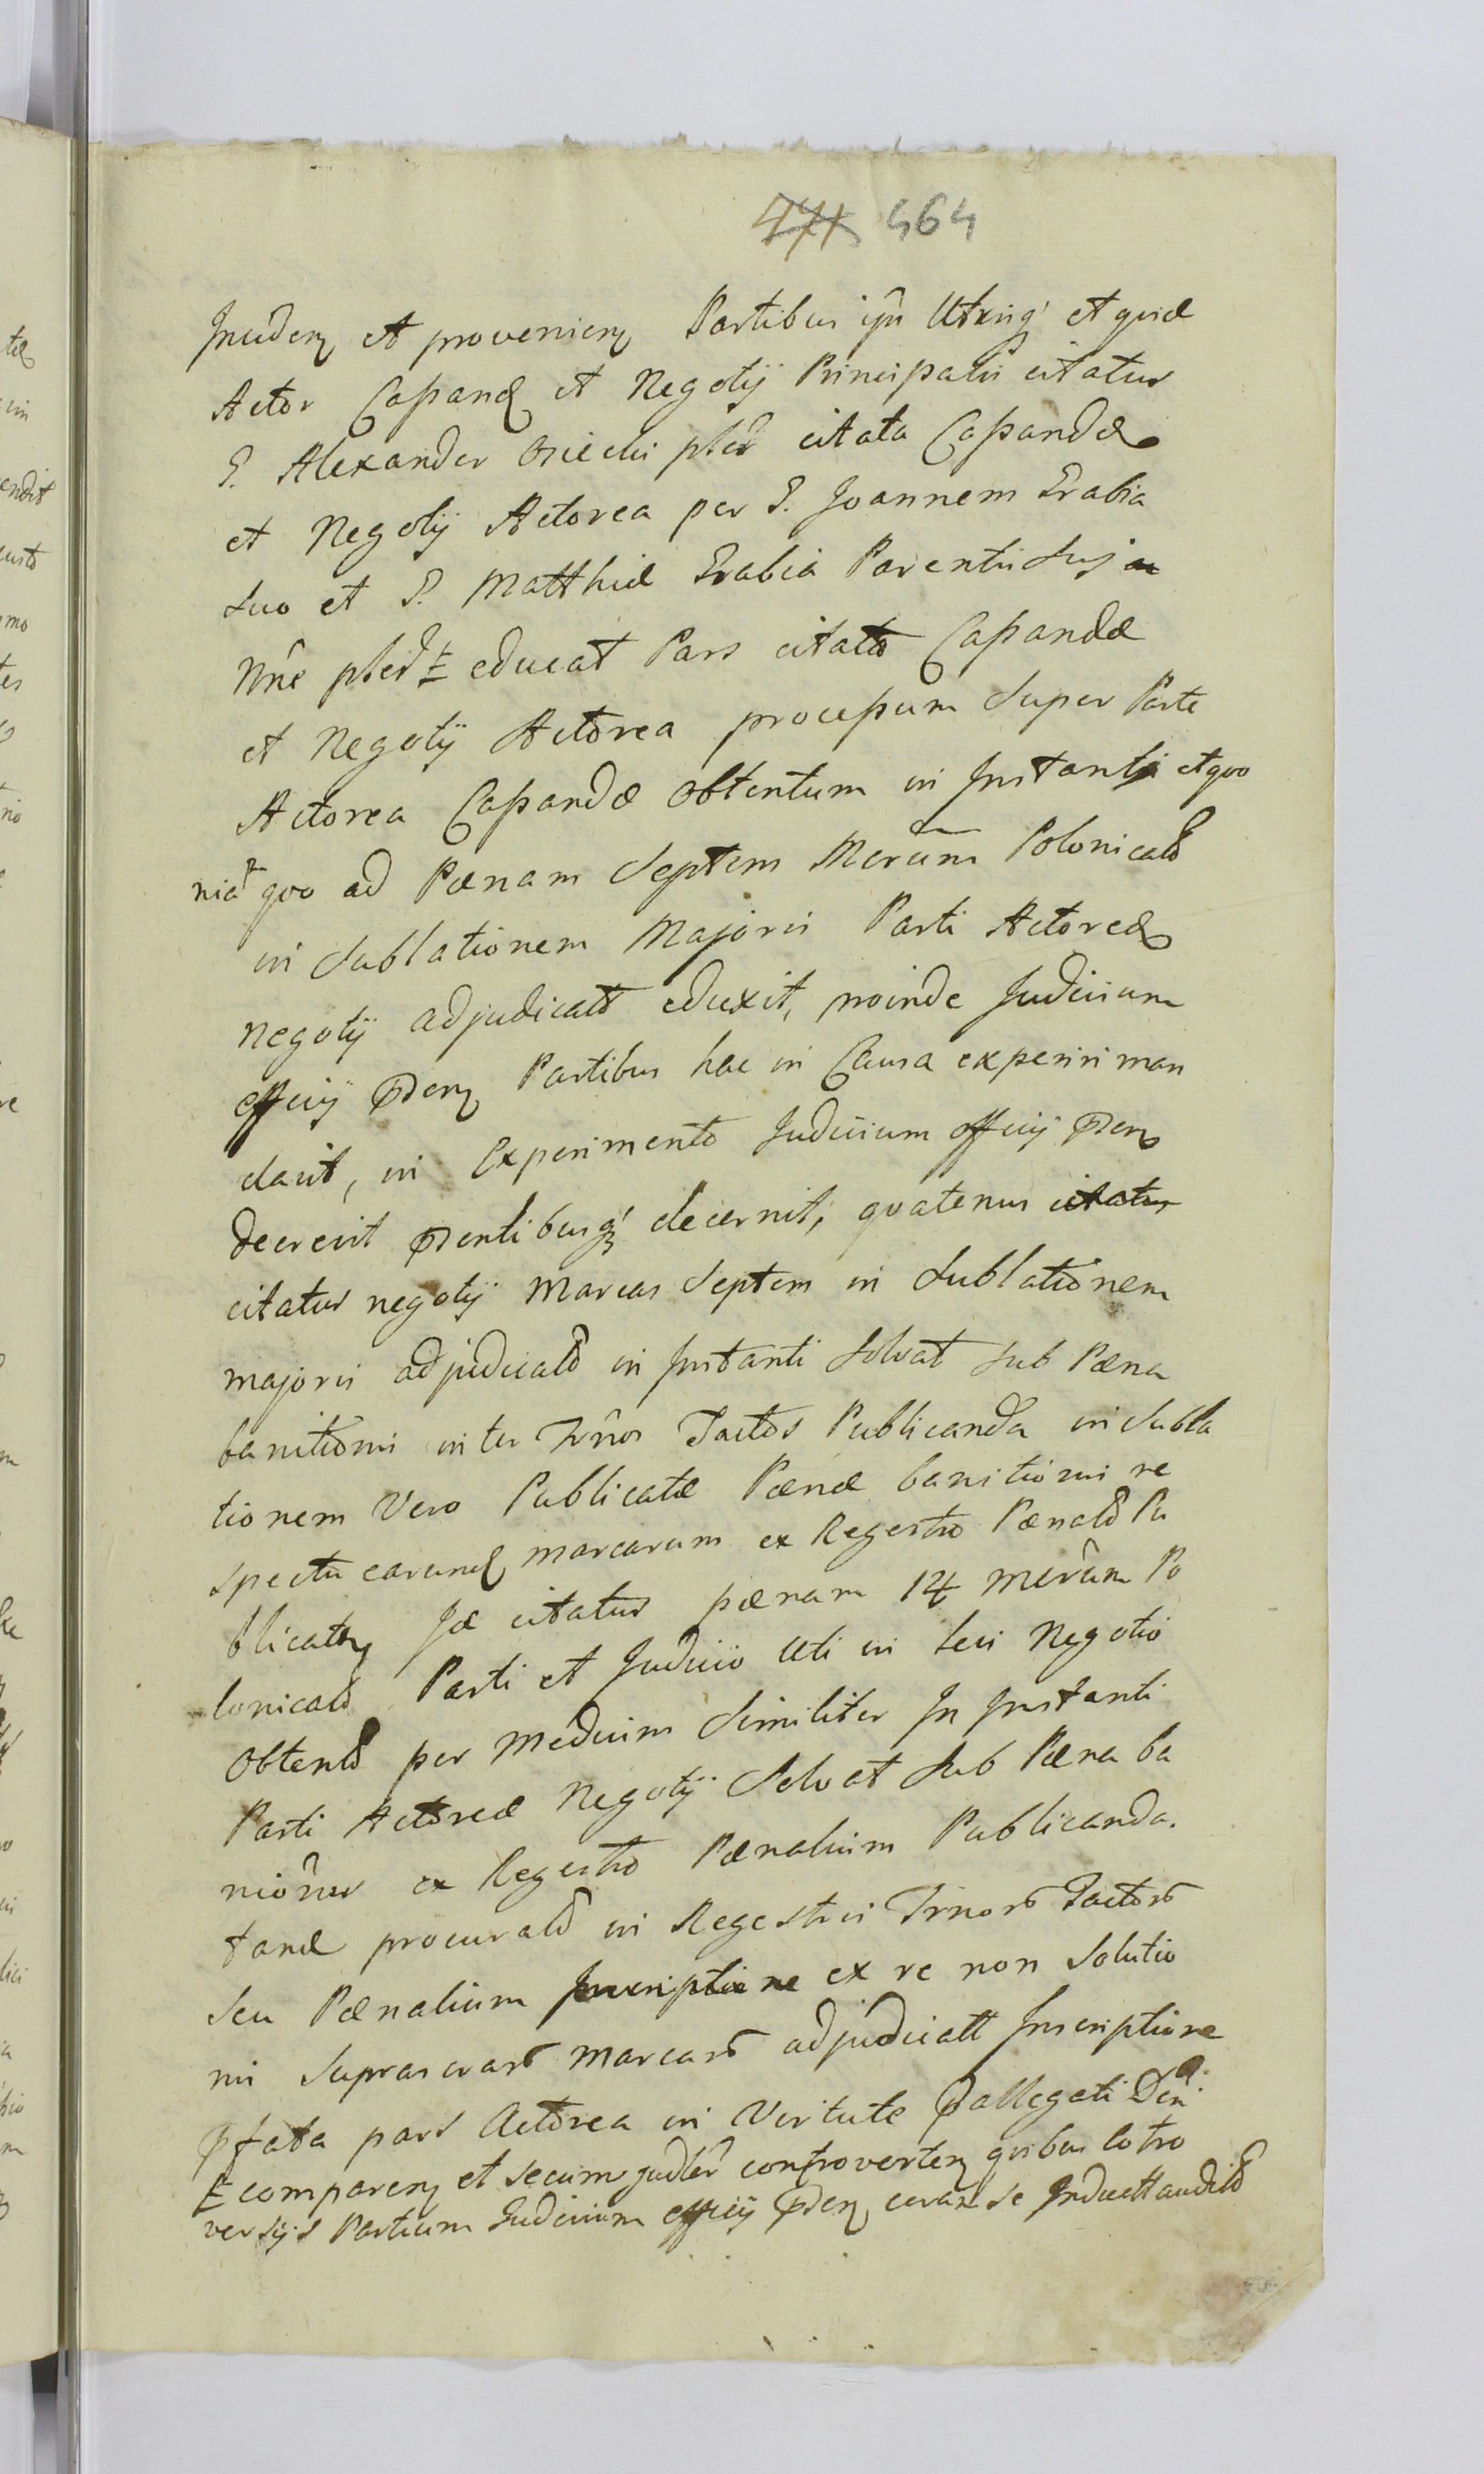 471 464
et proveniens Partibus ijs Utrinq' et quid
Actor Cassandæ et Negotij Principalis citatus
P. Alexander Osiecki plr citata Cassandæ
et Negotij Actorea per P. Joannem Drabia
suo et P. Matthiæ Drabia Parentis sui
Nñe plr educat Pars citata Cassandæ
et Negotij Actorea processum super Parte
Actorea Cassandæ obtentum in Instanti et quo
nia quo ad Pænam septem Mrcum Polonicalũ
in sublationem Majoris Parti Actoreæ
negotij adjudicatũ eduxit, proinde Judicium
officij Partibus hac in Causa experiri man
davit, in Experimento Judicium officij
decrevit decernit, quatenus citatus
citatus negotij marcas septem in sublationem
majoris adjudicatũ in Instanti solvat sub Pæna
banitionis inter Trños Factos Publicanda in subla
tionem Vero Publicatæ Pænæ banitionis re
spectu earund marcarum ex Regestro Pænalũ Pu
blicatæ citatus pænam 14 mrcum Po
lonicalũ Parti et Judicio Uti in levi Negotio
obtentũ per medium similiter In Instanti
Parti Actoreæ Negotij solvat sub Pæna ba
niõnis ex Regestro Pænalium Publicanda.
tand procuratũ in Regestris Trinorũ Factorũ
seu Pænalium Inscriptione ex re non solutio
nis marcarũ adjudicatt Inscriptione
pfata pars Actorea in Virtute pallegati
comparens et secum judlr controvertens quibus cotro
versijs Partium Judicium officij coram se Induett auditũ